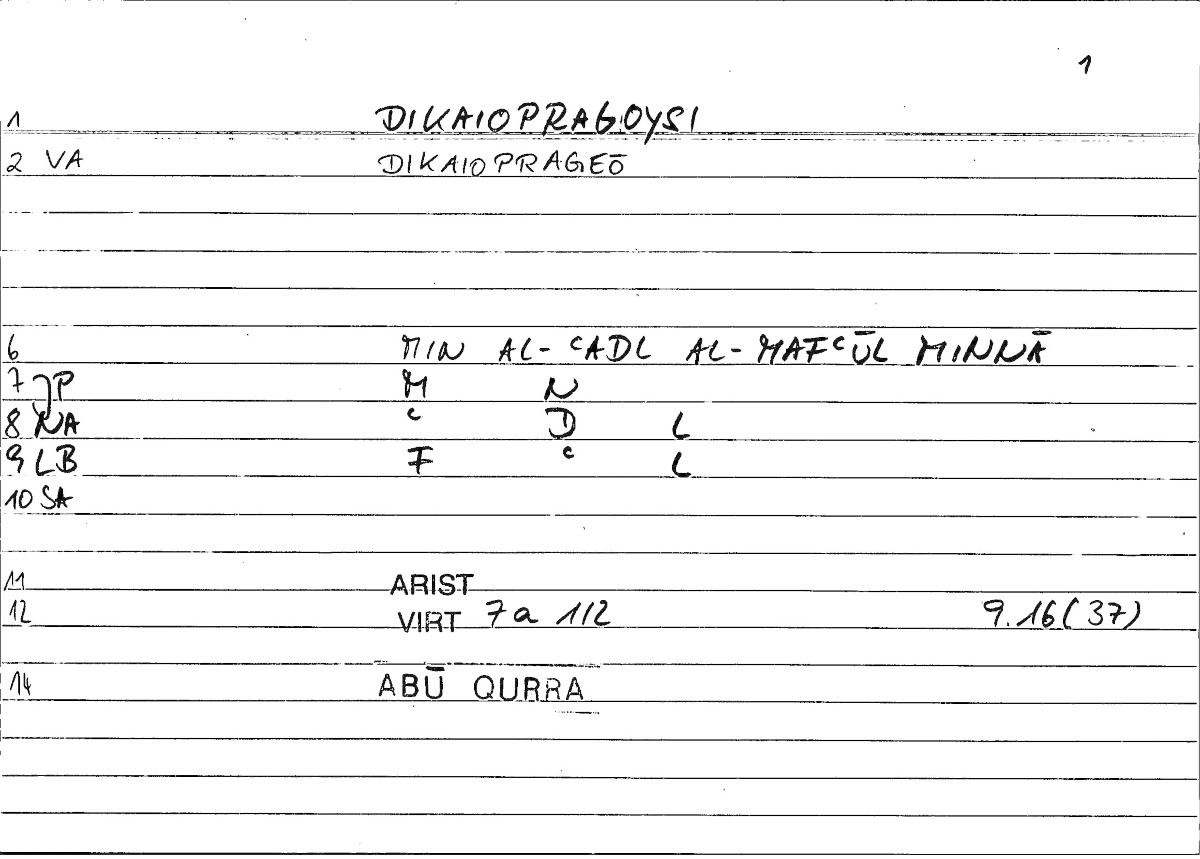 1
1 DIKAIOPRAGOYSI
2 VA DIKAIOPRAGEŌ
6 MIN AL-ᶜADL AL-MAFᶜŪL MINNĀ
7 JP M N
8 NA ᶜ D L
9 LB F ᶜ L
10 SA
11 ARIST
12 VIRT 7a 1/2 9.16(37)
14 ABŪ QURRA